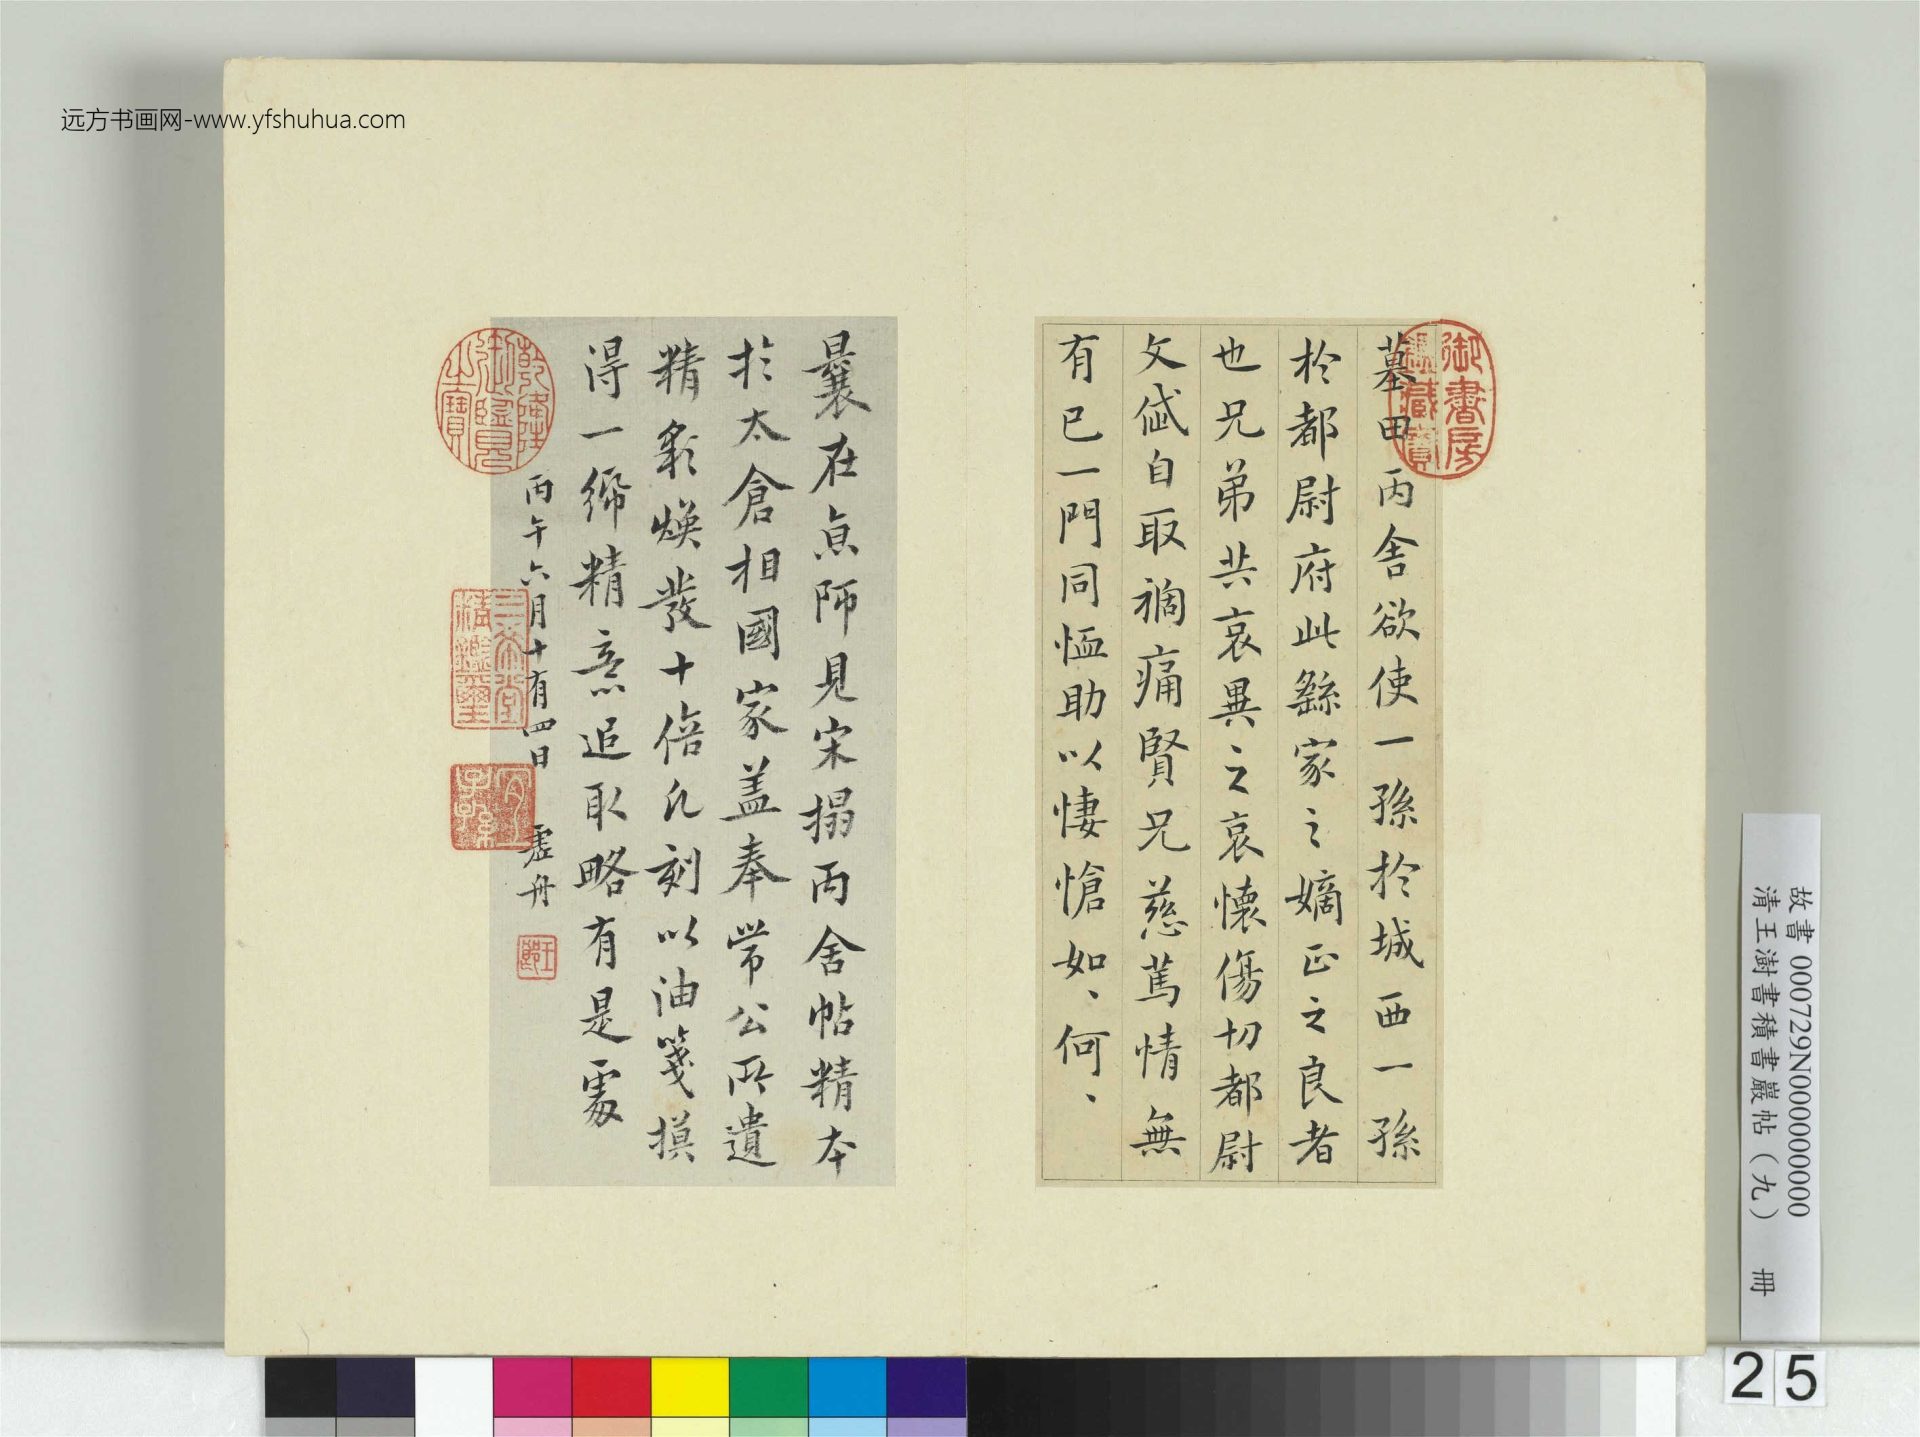 远方书画网-www.yfshuhua.com
墓田丙舍欲使一孫於城西一孫
於都尉府此繇家之嫡正之良者
也兄弟共哀異之哀懷傷切都尉
文岱自取禍痛賢兄慈篤情無
有已一門同恤助以悽愴如、何、
御書房鑑藏寶
曩在京師見宋搨丙舍帖精本
於太倉相國家盖奉常公所遺
精彩煥發十倍凡刻以油箋摸
得一
精意追取略有是處
丙午六月十有四日 虛舟
乾隆御覽之寶
三希堂精鑑璽
宜子孫
故書 000729N000000000
清王澍書積書巖帖（九） 冊
25